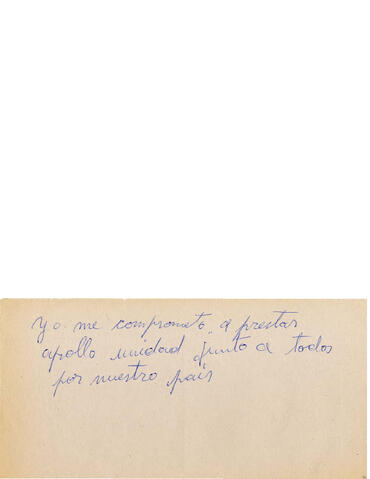 Yo me comprometo, a prestar
apollo unidad junto a todos
por nuestro país